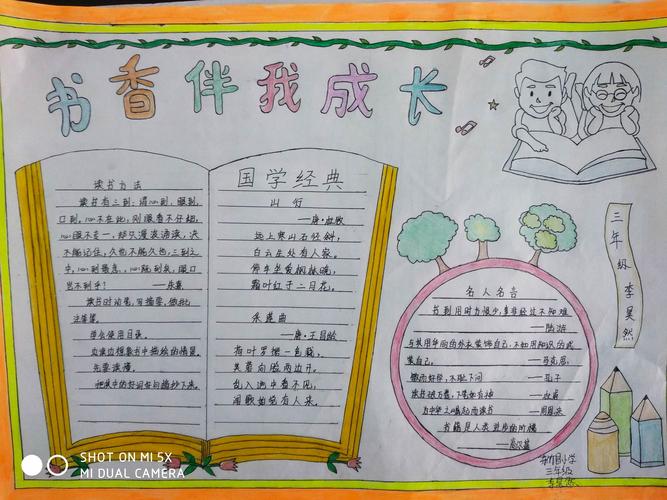 书香伴我成长
读书方法
读书有三到:谓心到,眼到,
口到。心不在此,则眼看不仔细,
心眼不专一,却只漫浪诵读,决
不能记住,久也不能久也。三到之
中,心到最急,心既到矣,眼口
岂不到乎!——朱熹
读书时动笔,写摘要,做批
注等等。
学会使用目录。
边读边想象书中描绘的情景。
先要读懂。
把书中的好词好句摘抄下来。
国学经典
山行
——唐·杜牧
远上寒山石径斜,
白云生处有人家。
停车坐爱枫林晚,
霜叶红于二月花。
采莲曲
——唐·王昌龄
荷叶罗裙一色裁,
芙蓉向脸两边开。
乱入池中看不见,
闻歌始觉有人来。
名人名言
书到用时方恨少,事非经过不知难
——陆游
与其用华丽的外衣装饰自己,不如用知识的武
装自己。——马克思
敏而好学,不耻下问——孔子
读书破万卷,下笔如有神——杜甫
为中华之崛起而读书——周恩来
书籍是人类进步的阶梯
——高尔基
三年级 李昊然
小学
三年级
李昊然
SHOT ON MI 5X
MI DUAL CAMERA